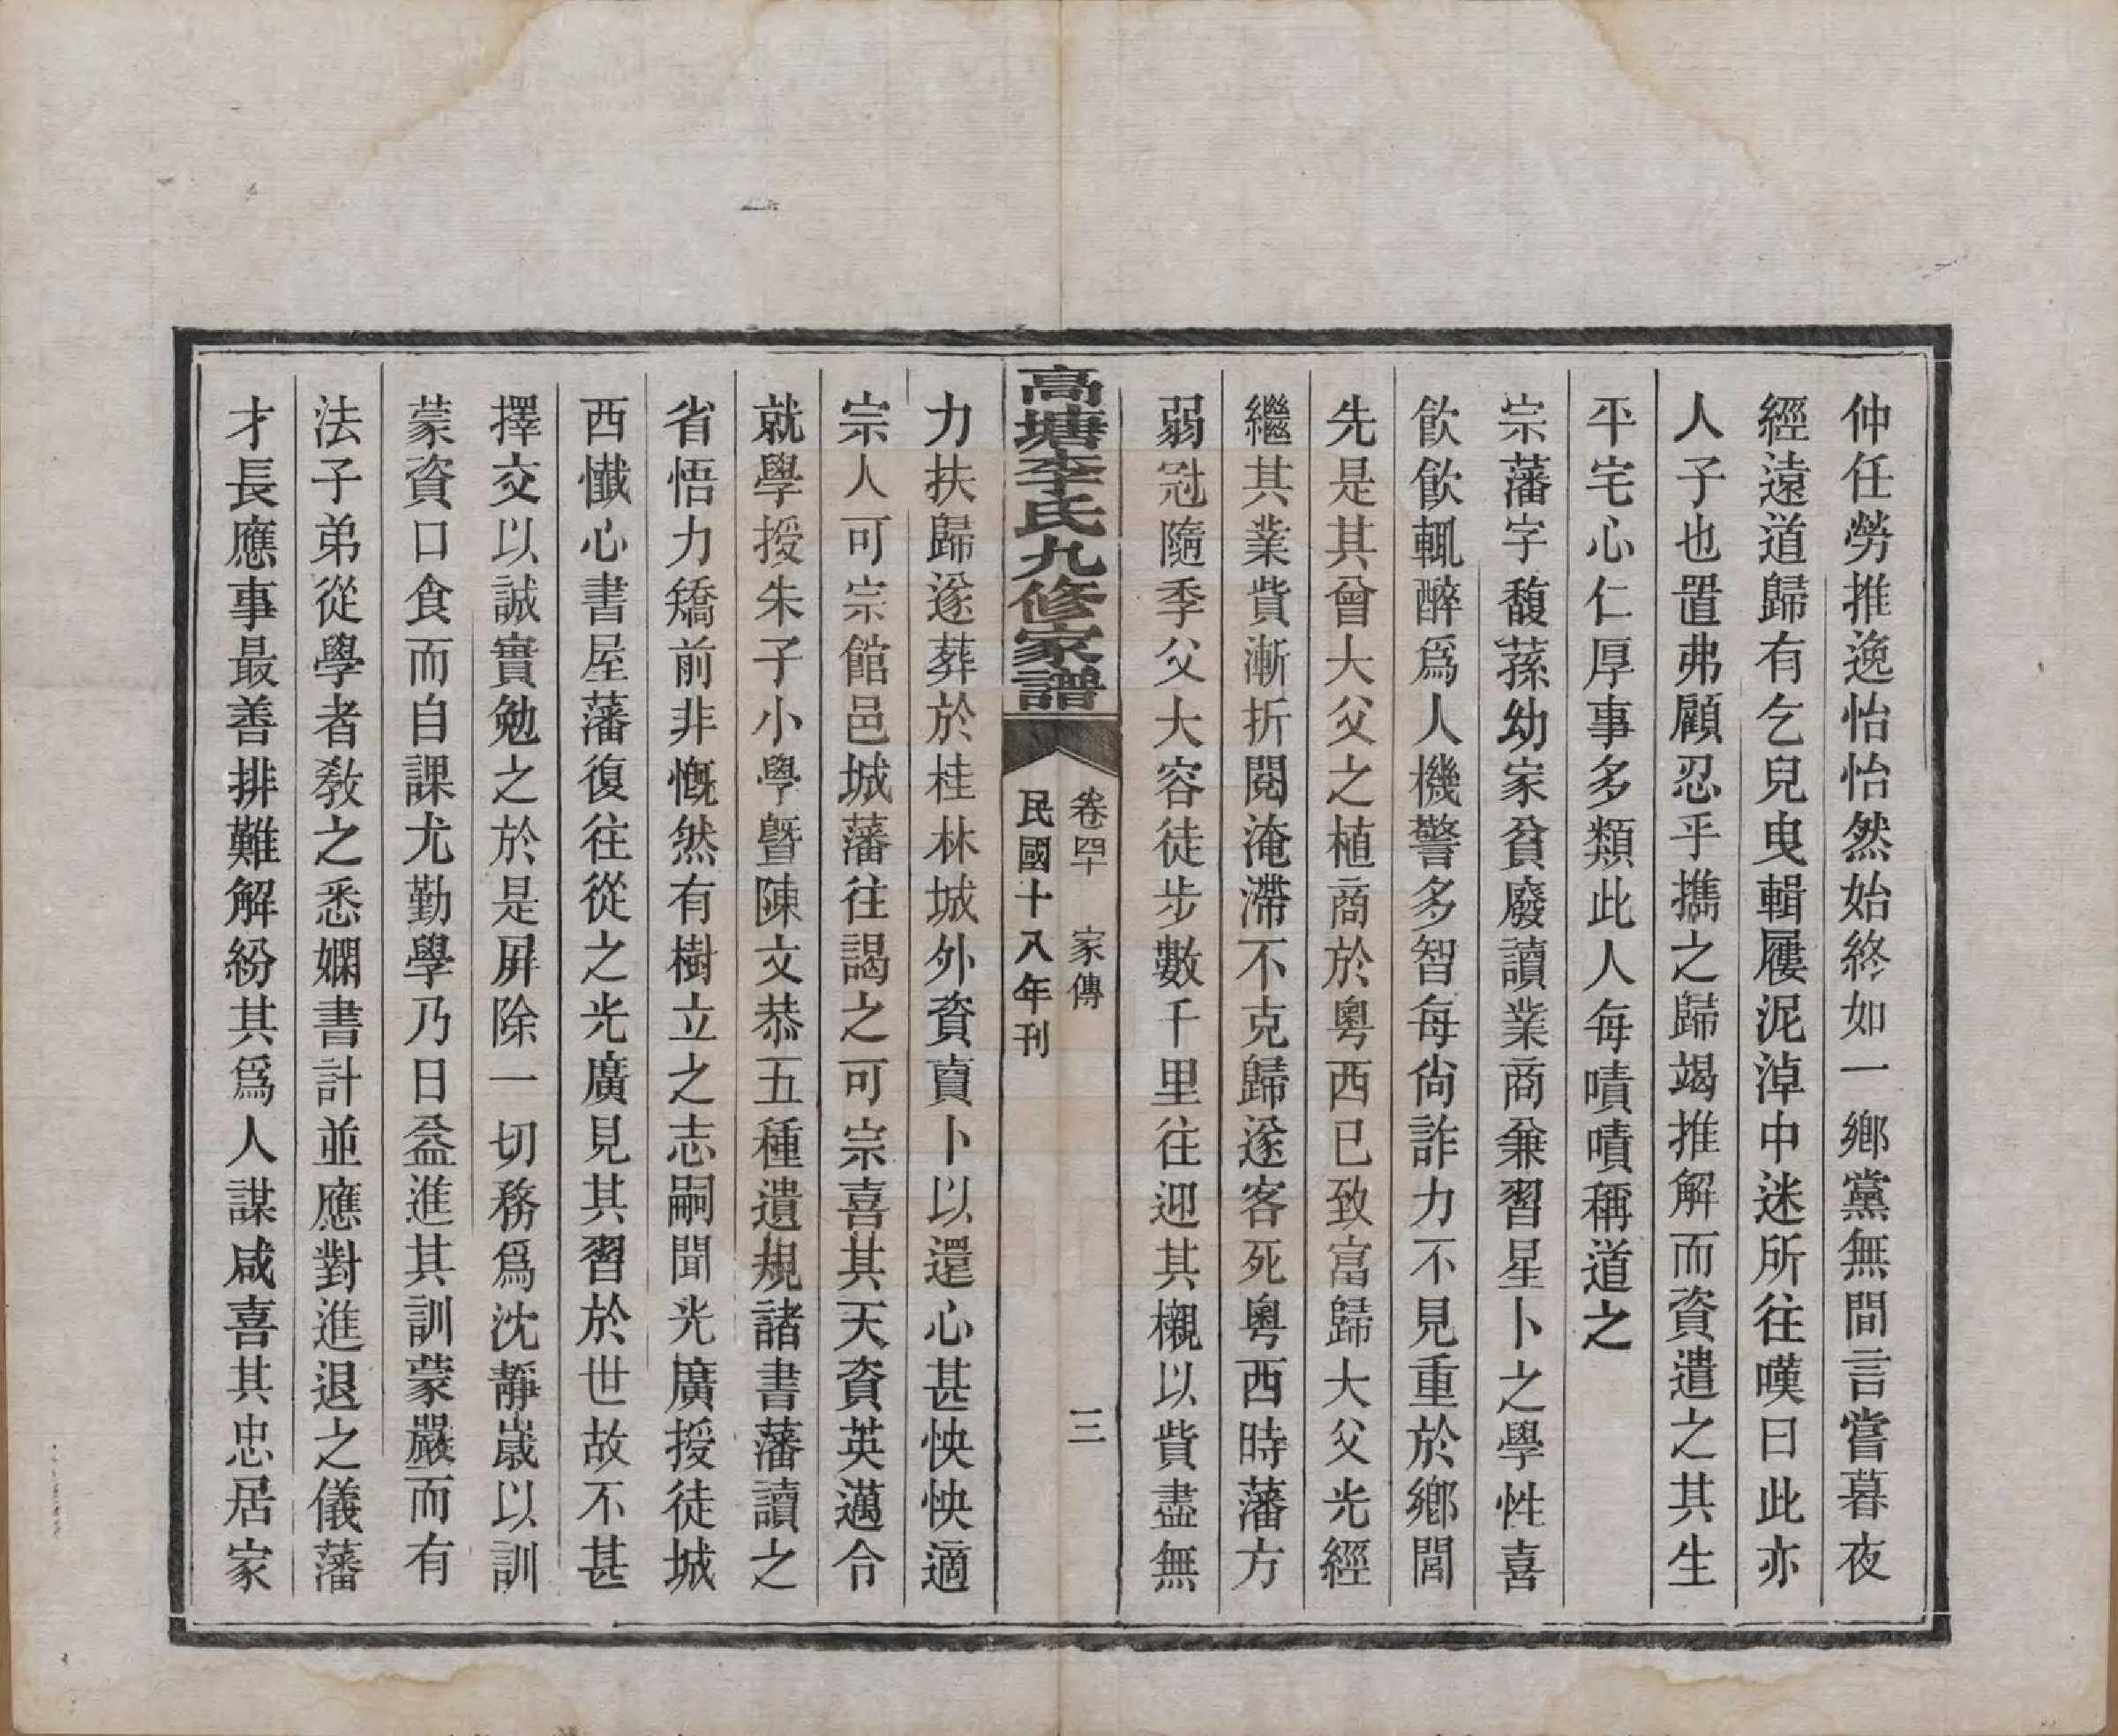 仲任勞推逸怡怡然始終如一鄉黨無間言嘗暮夜
經遠道歸有乞兒曳輯屨泥淖中迷所往嘆曰此亦
人子也置弗顧忍乎攜之歸竭推解而資遣之其生
平宅心仁厚事多類此人每嘖嘖稱道之
宗藩字馥蓀幼家貧廢讀業商兼習星卜之學性喜
飲飲輒醉爲人機警多智每尙詐力不見重於鄉閭
先是其曾大父之植商於粵西已致富歸大父光經
繼其業貲漸折閱淹滯不克歸遂客死粵西時藩方
弱冠隨季父大容徒步數千里往迎其櫬以貲盡無
高塘李氏九修家譜
卷四十 家傳
三
民國十八年刊
力扶歸遂葬於桂林城外資賣卜以還心甚怏怏適
宗人可宗館邑城藩往謁之可宗喜其天資英邁令
就學授朱子小學曁陳文恭五種遺規諸書藩讀之
省悟力矯前非慨然有樹立之志嗣聞光廣授徒城
西懺心書屋藩復往從之光廣見其習於世故不甚
擇交以誠實勉之於是屛除一切務爲沈靜歲以訓
蒙資口食而自課尤勤學乃日益進其訓蒙嚴而有
法子弟從學者敎之悉嫻書計並應對進退之儀藩
才長應事最善排難解紛其爲人謀咸喜其忠居家